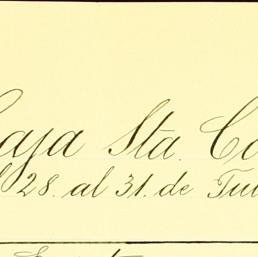 Caja Sta. Co
28. al 31. de Jul